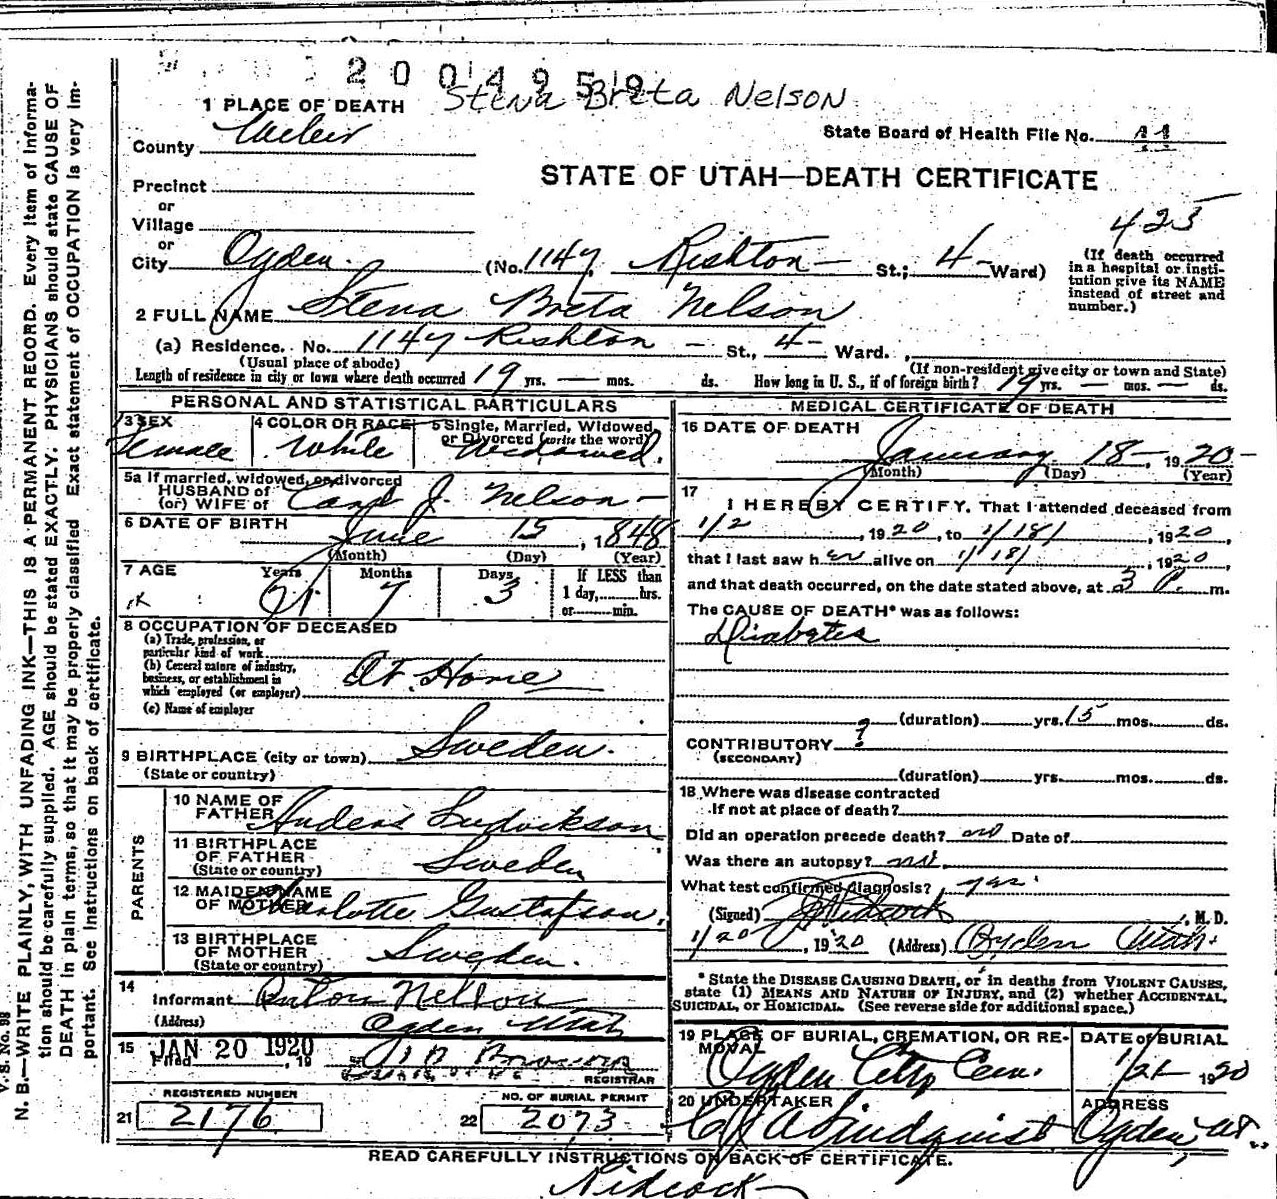 2004959
Stena Breta Nelson
1 PLACE OF DEATH
State Board of Health File No. 44
County Weber
STATE OF UTAH—DEATH CERTIFICATE
Precinct
or
Village
or
425
City Ogden. (No. 1147 Rishton— St.; 4- Ward)
(If death occurred in a hospital or institution give its NAME instead of street and number.)
2 FULL NAME Stena Breta Nelson
(a) Residence. No. 1147 Rishton — St., 4- Ward.
(Usual place of abode) (If non-resident give city or town and State)
Length of residence in city or town where death occurred 19 yrs. — mos. ds. How long in U. S., if of foreign birth? 19 yrs. — mos. — ds.
PERSONAL AND STATISTICAL PARTICULARS
3 SEX Female
4 COLOR OR RACE White
5 Single, Married, Widowed or Divorced (write the word) Widowed.
5a If married, widowed, or divorced
HUSBAND of
(or) WIFE of J. Nelson—
6 DATE OF BIRTH June 15, 1848
(Month) (Day) (Year)
7 AGE Years 71 Months 7 Days 3 If LESS than 1 day,......hrs. or......min.
8 OCCUPATION OF DECEASED
(a) Trade, profession, or particular kind of work
(b) General nature of industry, business, or establishment in which employed (or employer) At Home
(c) Name of employer
9 BIRTHPLACE (city or town) Sweden.
(State or country)
PARENTS
10 NAME OF FATHER Anders Ludvickson
11 BIRTHPLACE OF FATHER Sweden
(State or country)
12 MAIDEN NAME OF MOTHER Charlotte Gustafson,
13 BIRTHPLACE OF MOTHER Sweden.
(State or country)
14 Informant Anton Nelson
(Address) Ogden Utah
15 Filed JAN 20 1920, 19
REGISTRAR
REGISTERED NUMBER
21 2176
NO. OF BURIAL PERMIT
22 2073
MEDICAL CERTIFICATE OF DEATH
16 DATE OF DEATH January 18—, 1920—
(Month) (Day) (Year)
17
I HEREBY CERTIFY, That I attended deceased from
1/2, 1920, to 1/18/, 1920
that I last saw her alive on 1/18/, 1920,
and that death occurred, on the date stated above, at 3 P. m.
The CAUSE OF DEATH* was as follows:
Diabetes
(duration) yrs. 15 mos. ds.
CONTRIBUTORY ?
(SECONDARY)
(duration) yrs. mos. ds.
18 Where was disease contracted
If not at place of death?
Did an operation precede death? no Date of
Was there an autopsy? no.
What test confirmed diagnosis? yes.
(Signed) Ridcock, M. D.
1/20, 1920 (Address) Ogden Utah.
* State the DISEASE CAUSING DEATH, or in deaths from VIOLENT CAUSES,
state (1) MEANS AND NATURE OF INJURY, and (2) whether ACCIDENTAL,
SUICIDAL, OR HOMICIDAL. (See reverse side for additional space.)
19 PLACE OF BURIAL, CREMATION, OR REMOVAL
Ogden City Cem.
DATE of BURIAL
1/21 1920
20 UNDERTAKER
Lindquist
ADDRESS
Ogden, Ut.
READ CAREFULLY INSTRUCTIONS ON BACK OF CERTIFICATE.
Ridcock
V. S. No. 98
N. B.—WRITE PLAINLY, WITH UNFADING INK—THIS IS A PERMANENT RECORD. Every item of information should be carefully supplied. AGE should be stated EXACTLY. PHYSICIANS should state CAUSE OF DEATH in plain terms, so that it may be properly classified. Exact statement of OCCUPATION is very important. See instructions on back of certificate.